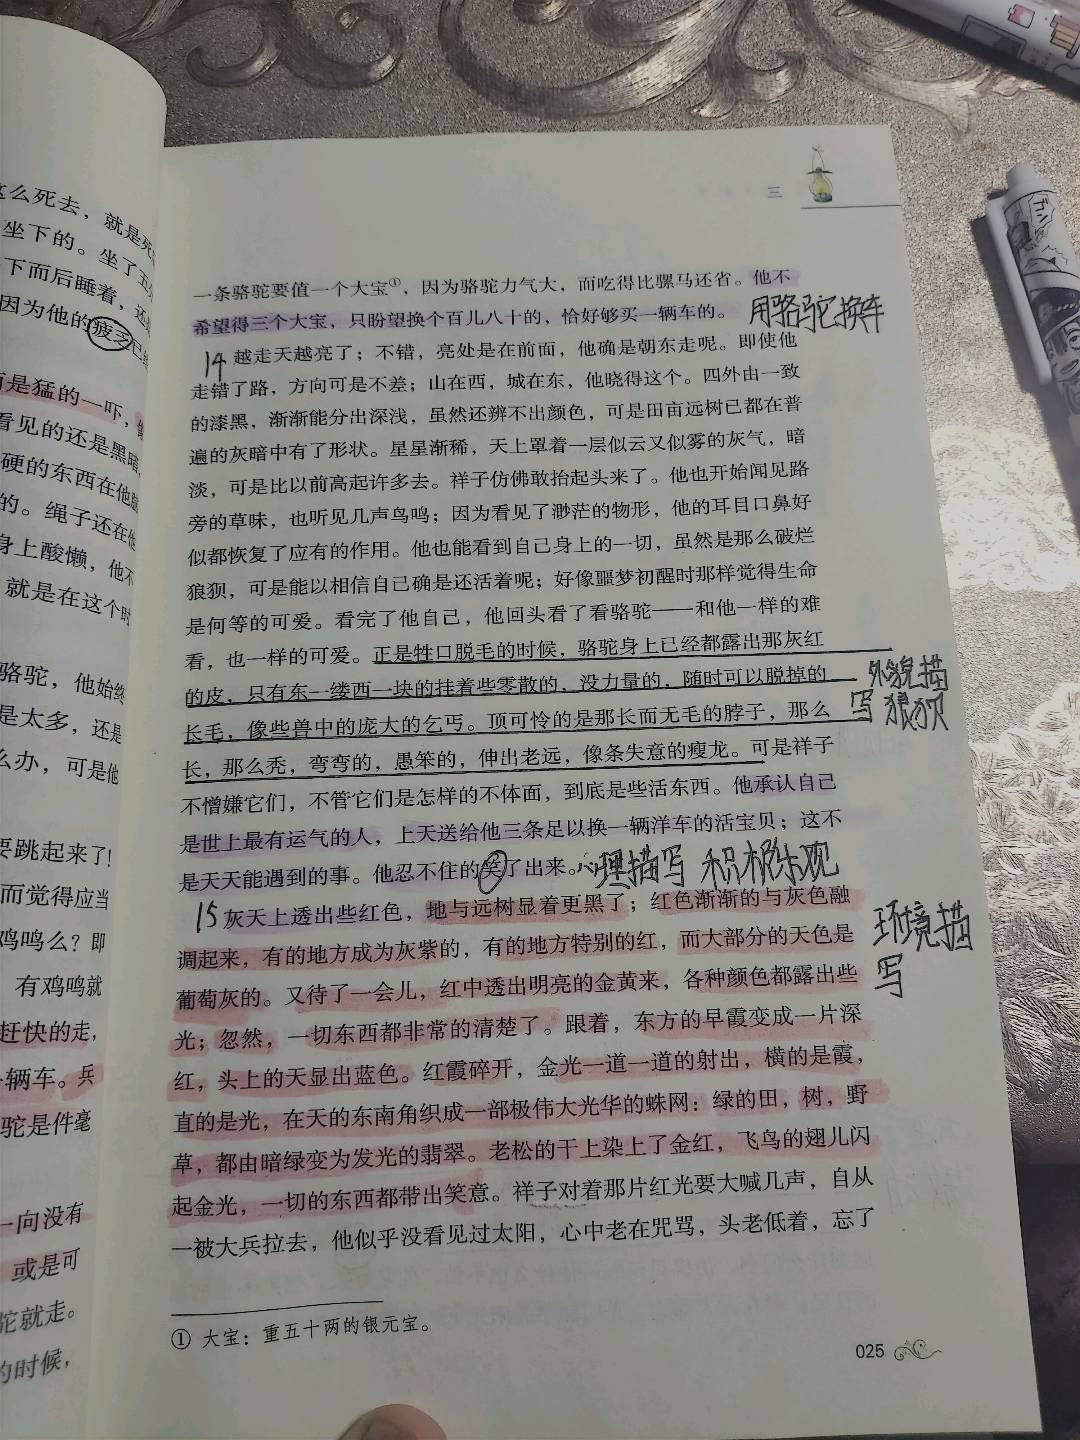 这么死去，就是死
坐下的。坐了五
下而后睡着，还
因为他的疲乏已经
而是猛的一吓，
看见的还是黑暗，
硬的东西在他
的。绳子还在他
身上酸懒，他不
就是在这个时
骆驼，他始终
是太多，还是
么办，可是他
要跳起来了！
而觉得应当
鸡鸣么？即
有鸡鸣就
赶快的走，
一辆车。兵
驼是件毫
一向没有
或是可
驼就走。
的时候，
三
一条骆驼要值一个大宝①，因为骆驼力气大，而吃得比骡马还省。他不
希望得三个大宝，只盼望换个百儿八十的，恰好够买一辆车的。
用骆驼换车
14 越走天越亮了；不错，亮处是在前面，他确是朝东走呢。即使他
走错了路，方向可是不差；山在西，城在东，他晓得这个。四外由一致
的漆黑，渐渐能分出深浅，虽然还辨不出颜色，可是田亩远树已都在普
遍的灰暗中有了形状。星星渐稀，天上罩着一层似云又似雾的灰气，暗
淡，可是比以前高起许多去。祥子仿佛敢抬起头来了。他也开始闻见路
旁的草味，也听见几声鸟鸣；因为看见了渺茫的物形，他的耳目口鼻好
似都恢复了应有的作用。他也能看到自己身上的一切，虽然是那么破烂
狼狈，可是能以相信自己确是还活着呢；好像噩梦初醒时那样觉得生命
是何等的可爱。看完了他自己，他回头看了看骆驼——和他一样的难
看，也一样的可爱。正是牲口脱毛的时候，骆驼身上已经都露出那灰红
的皮，只有东一缕西一块的挂着些零散的，没力量的，随时可以脱掉的
长毛，像些兽中的庞大的乞丐。顶可怜的是那长而无毛的脖子，那么
长，那么秃，弯弯的，愚笨的，伸出老远，像条失意的瘦龙。可是祥子
外貌描
写 狼狈
不憎嫌它们，不管它们是怎样的不体面，到底是些活东西。他承认自己
是世上最有运气的人，上天送给他三条足以换一辆洋车的活宝贝；这不
是天天能遇到的事。他忍不住的笑了出来。心理描写 积极乐观
15 灰天上透出些红色，地与远树显着更黑了；红色渐渐的与灰色融
调起来，有的地方成为灰紫的，有的地方特别的红，而大部分的天色是
葡萄灰的。又待了一会儿，红中透出明亮的金黄来，各种颜色都露出些
光；忽然，一切东西都非常的清楚了。跟着，东方的早霞变成一片深
红，头上的天显出蓝色。红霞碎开，金光一道一道的射出，横的是霞，
直的是光，在天的东南角织成一部极伟大光华的蛛网：绿的田，树，野
草，都由暗绿变为发光的翡翠。老松的干上染上了金红，飞鸟的翅儿闪
起金光，一切的东西都带出笑意。祥子对着那片红光要大喊几声，自从
一被大兵拉去，他似乎没看见过太阳，心中老在咒骂，头老低着，忘了
环境描
写
① 大宝：重五十两的银元宝。
025